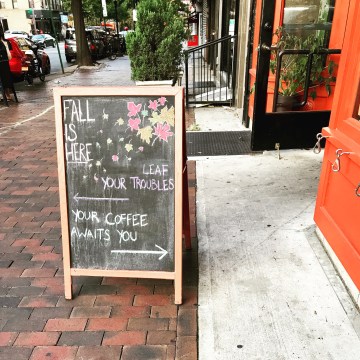 FALL
IS
HERE
LEAF
YOUR TROUBLES
YOUR COFFEE
AWAITS YOU